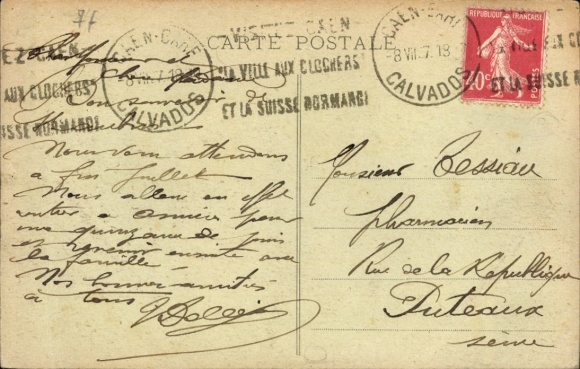 CARTE POSTALE
VISITEZ CAEN
"LA VILLE AUX CLOCHERS"
ET LA SUISSE NORMANDE
CAEN-GARE
-8 VII 7. 18
CALVADOS
CAEN-GARE
-8 VII 7. 18
CALVADOS
EZ CAEN
AUX CLOCHERS"
SUISSE NORMANDE
REPUBLIQUE FRANÇAISE
40c
POSTES
souvenir de
Nous vous attendons
à fin juillet
Nous allons en effet
rentrer à pour
une quinzaine de jours
et revenir ensuite avec
la famille.
Nos bonnes amitiés
à tous
Monsieur Tessiau
pharmacien
Rue de la République
Puteaux
Seine